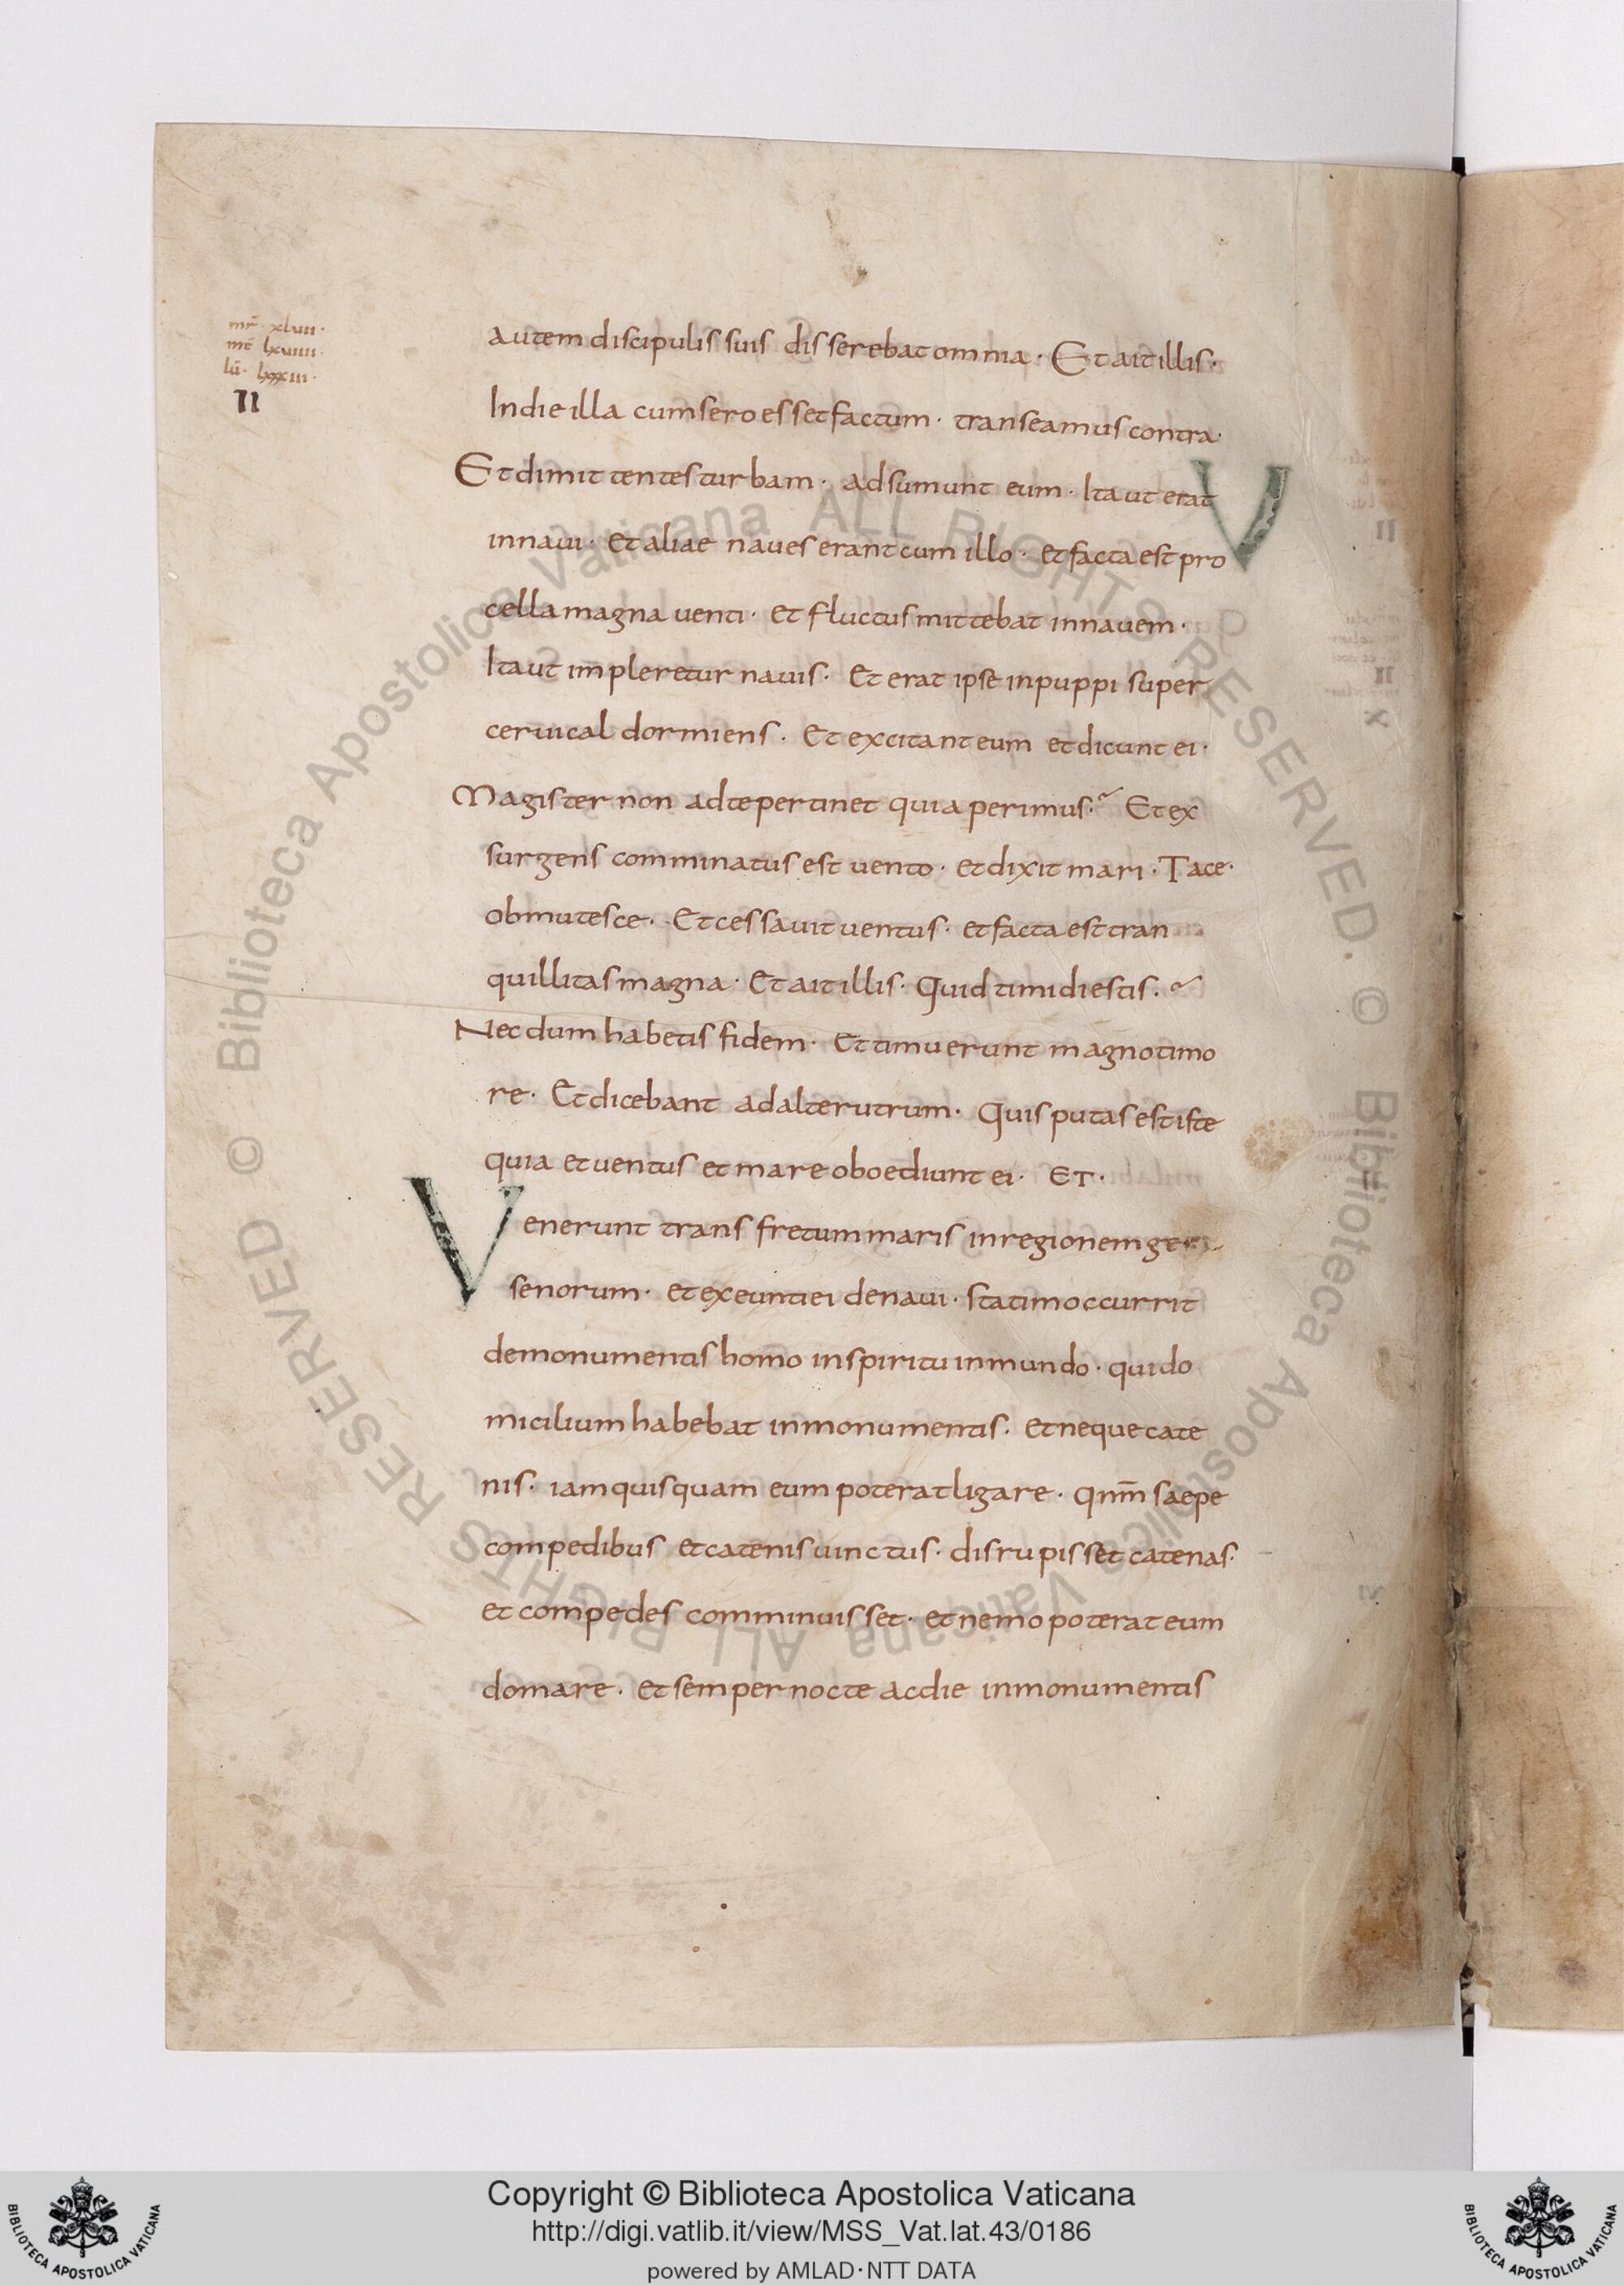 mr̄ xlvii·
mt̄ lxviiii·
lū· lxxxiii·
II
autem discipulis suis disserebat omnia · Et ait illis·
In die illa cum sero esset factum · transeamus contra·
Et dimittentes turbam · adsumunt eum · Ita ut erat
in naui · et aliae naues erant cum illo · et facta est pro
cella magna uenti · et fluctus mittebat in nauem ·
Ita ut impleretur nauis · Et erat ipse in puppi super
ceruical dormiens · Et excitant eum et dicunt ei ·
Magister non ad te pertinet quia perimus · Et ex
surgens comminatus est uento · et dixit mari · Tace·
obmutesce · Et cessauit uentus · et facta est tran
quillitas magna · Et ait illis · Quid timidi estis ·
Necdum habetis fidem · Et timuerunt magno timo
re · Et dicebant ad alterutrum · Quis putas est iste
quia et uentus et mare oboediunt ei · ET ·
Venerunt trans fretum maris in regionem
senorum · et exeunti ei de naui · statim occurrit
de monumentis homo in spiritu inmundo · qui do
micilium habebat in monumentis · et neque cate
nis · iam quisquam eum poterat ligare · qnm̄ saepe
compedibus et catenis uinctus · disrupisset catenas·
et compedes comminuisset · et nemo poterat eum
domare · et semper nocte ac die in monumentis
© Biblioteca Apostolica Vaticana ALL RIGHTS RESERVED
© Biblioteca Apostolica Vaticana ALL RIGHTS RESERVED
Copyright © Biblioteca Apostolica Vaticana
http://digi.vatlib.it/view/MSS_Vat.lat.43/0186
powered by AMLAD·NTT DATA
BIBLIOTECA APOSTOLICA VATICANA
BIBLIOTECA APOSTOLICA VATICANA